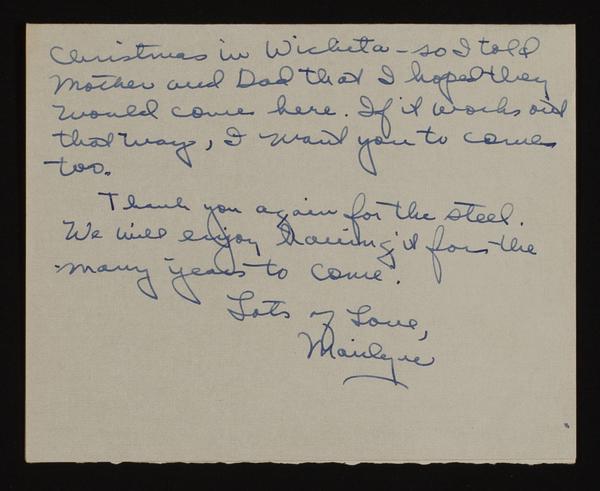 Christmas in Wichita - so I told
Mother and Dad that I hoped they
would come here. If it works out
that way, I want you to come
too.
Thank you again for the steel.
We will enjoy having it for the
many years to come.
Lots of Love,
Marilyn